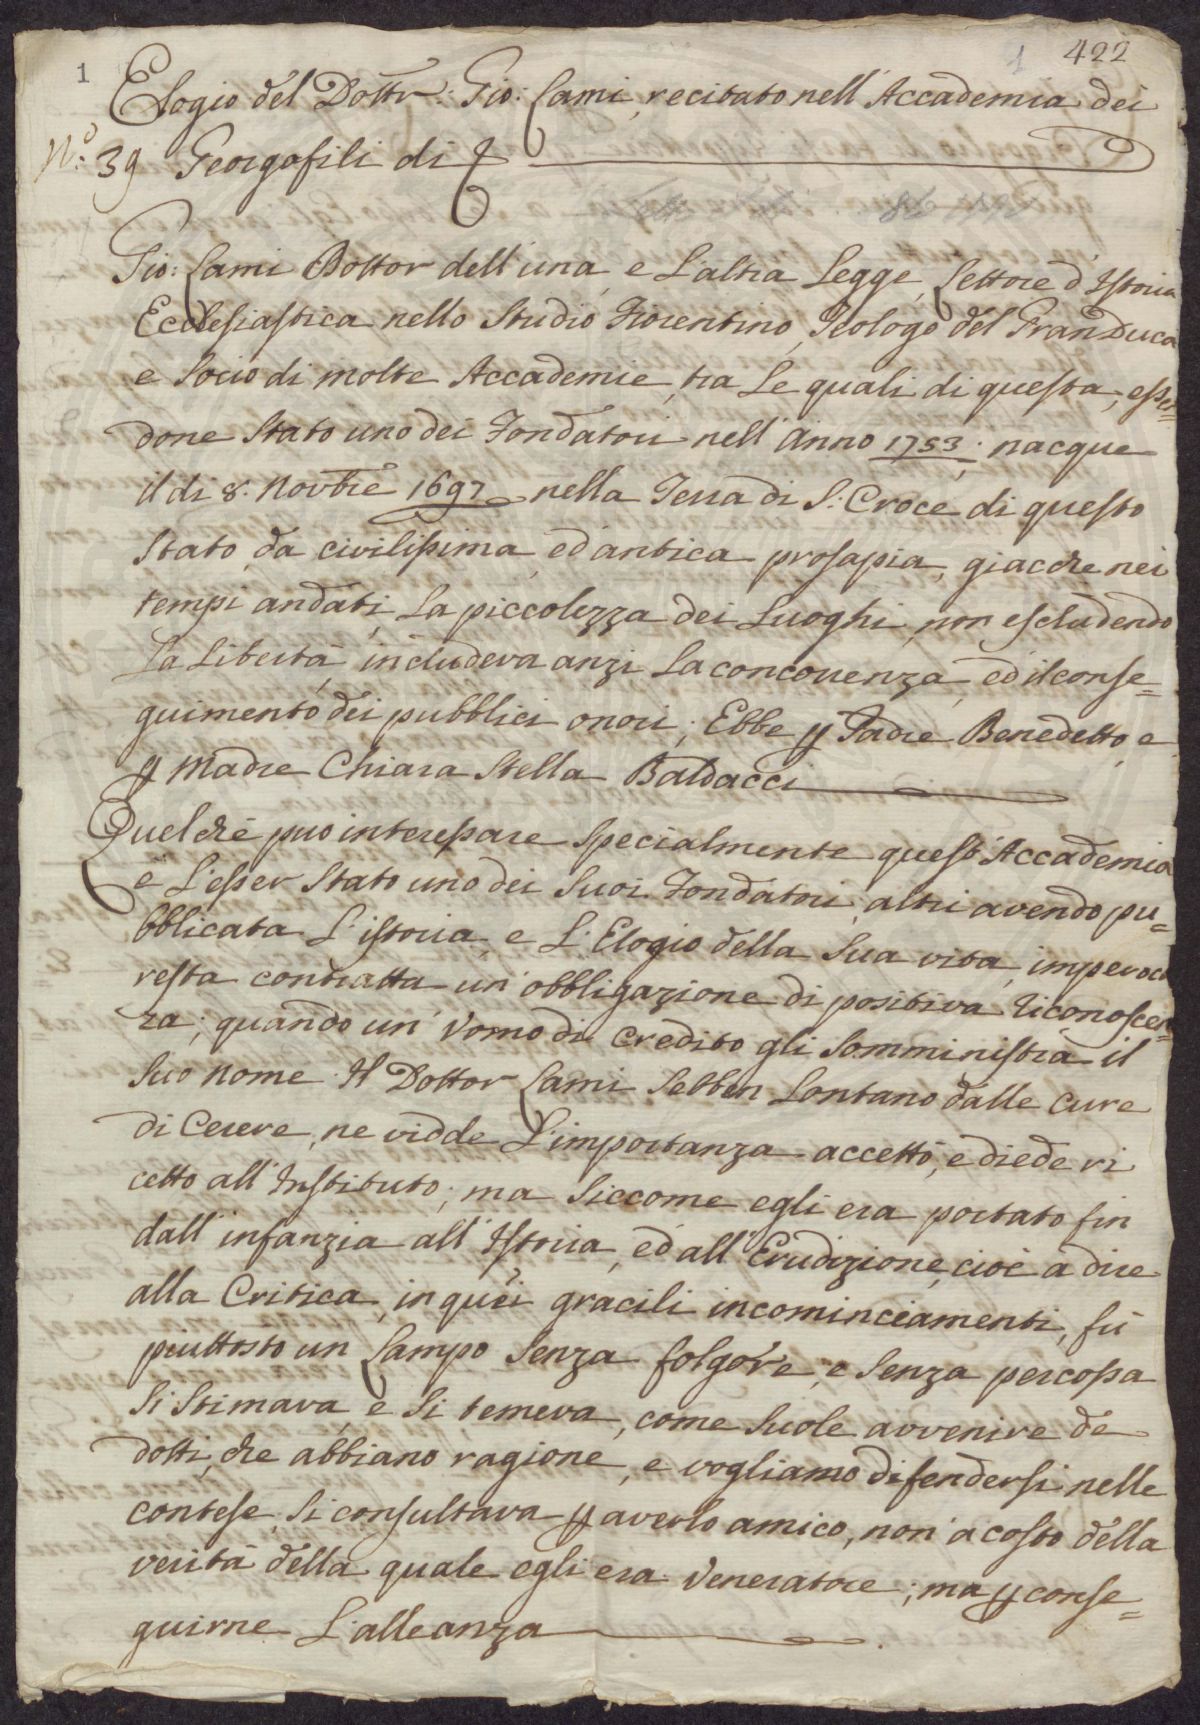 1
1 422
Elogio del Dottr: Gio: Lami, recitato nell'Accademia dei
N.o 39 Georgofili di
Gio: Lami Dottor dell'una, e L'altra Legge, Lettore d'Istoria
Ecclesiastica nello Studio Fiorentino, Teologo del GranDuca
e Socio di molte Accademie, tra Le quali di questa, essen=
done Stato uno dei Fondatori nell'Anno 1753; nacque
il di 8. Novbre 1697 nella Terra di S: Croce di questo
Stato, da civilissima, ed antica prosapia, giacche nei
tempi andati, La piccolezza dei Luoghi, non escludendo
La Libertà, includeva anzi La concorrenza, ed il conse=
guimento dei pubblici onori; Ebbe p Padre Benedetto, e
p Madre Chiara Stella Baldacci
Quelche puo interessare Specialmente quest'Accademia
è L'esser Stato uno dei Suoi Fondatori, altri avendo pu=
bblicata L'istoria, e L'Elogio della Sua vita, imperocc
resta contratta un'obbligazione di positiva riconoscen=
za; quando un'Uomo di credito gli Somministra il
Suo nome. Il Dottor Lami Sebben Lontano dalle cure
di Cerere, ne vidde L'importanza accettò, e diede ri
cetto all'Instituto; ma Siccome egli era portato fin
dall'infanzia all'Istoria, ed all'Erudizione, cioè a dire
alla Critica, in quei gracili incominciamenti, fù
piuttosto un Lampo Senza folgore, e Senza percossa
Si Stimava, e Si temeva, come Suole avvenire de
dotti, che abbiano ragione, e vogliamo difendersi nelle
contese, Si consultava p averlo amico, non a costo della
verità della quale egli era Veneratore; ma p conse=
guirne L'alleanza